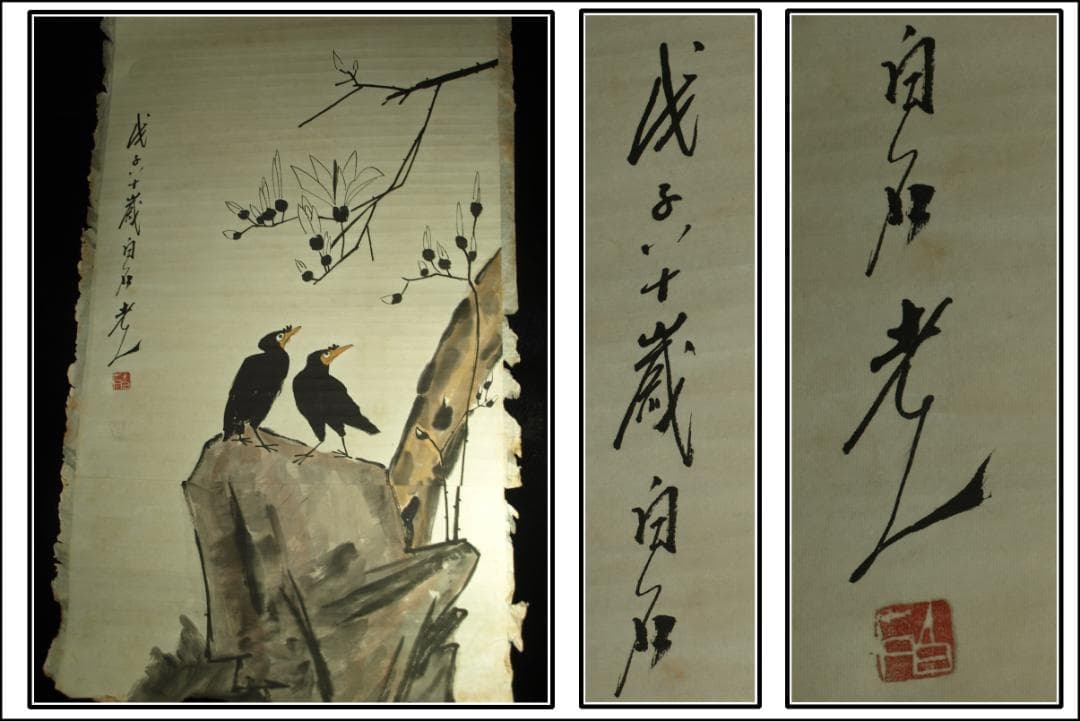 戊子八十歲白石老人
戊子八十歲白石
白石老人